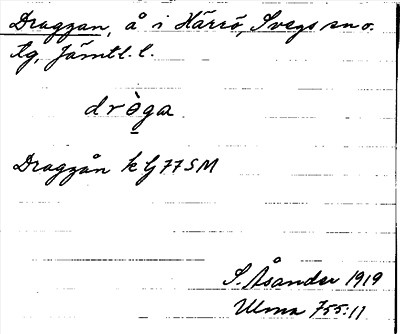 Draggan, å i Härrö, Svegs sn o.
tg, Jämtl. l.
dròga
Draggån k G 77 SM
S. Åsander 1919
Ulma 755:11